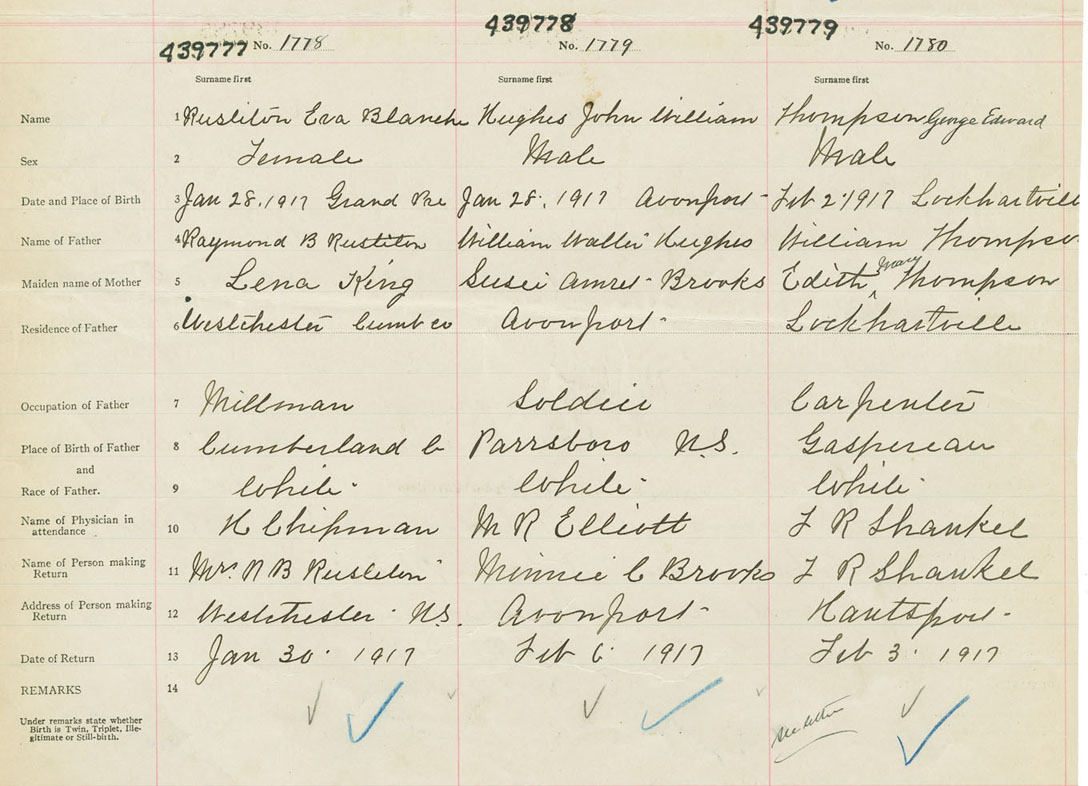 439777 No. 1778 439778 No. 1779 439779 No. 1780
Surname first Surname first Surname first
Name 1 Rusliton Eva Blanche Hughes John William Thompson George Edward
Sex 2 Female Male Male
Date and Place of Birth 3 Jan 28. 1917 Grand Pre Jan 28. 1917 Avonport Feb 2 1917 Lockhartvill
Name of Father 4 Raymond B William Walter Hughes William Thompso
Maiden name of Mother 5 Lena King Susie Brooks Edith Mary Thompson
Residence of Father 6 Westchester Cumb co Avonport Lockhartville
Occupation of Father 7 Millman Soldier Carpenter
Place of Birth of Father 8 Cumberland C Parrsboro N.S. Gaspereau
and
Race of Father. 9 White White White
Name of Physician in attendance 10 H Chipman M R Elliott F R Shankel
Name of Person making Return 11 Mrs. R B Minnie C Brooks F R Shankel
Address of Person making Return 12 Westchester N.S. Avonport Hantsport
Date of Return 13 Jan 30. 1917 Feb 6 1917 Feb 3. 1917
REMARKS 14
Under remarks state whether
Birth is Twin, Triplet, Ille-
gitimate or Still-birth.
see letter